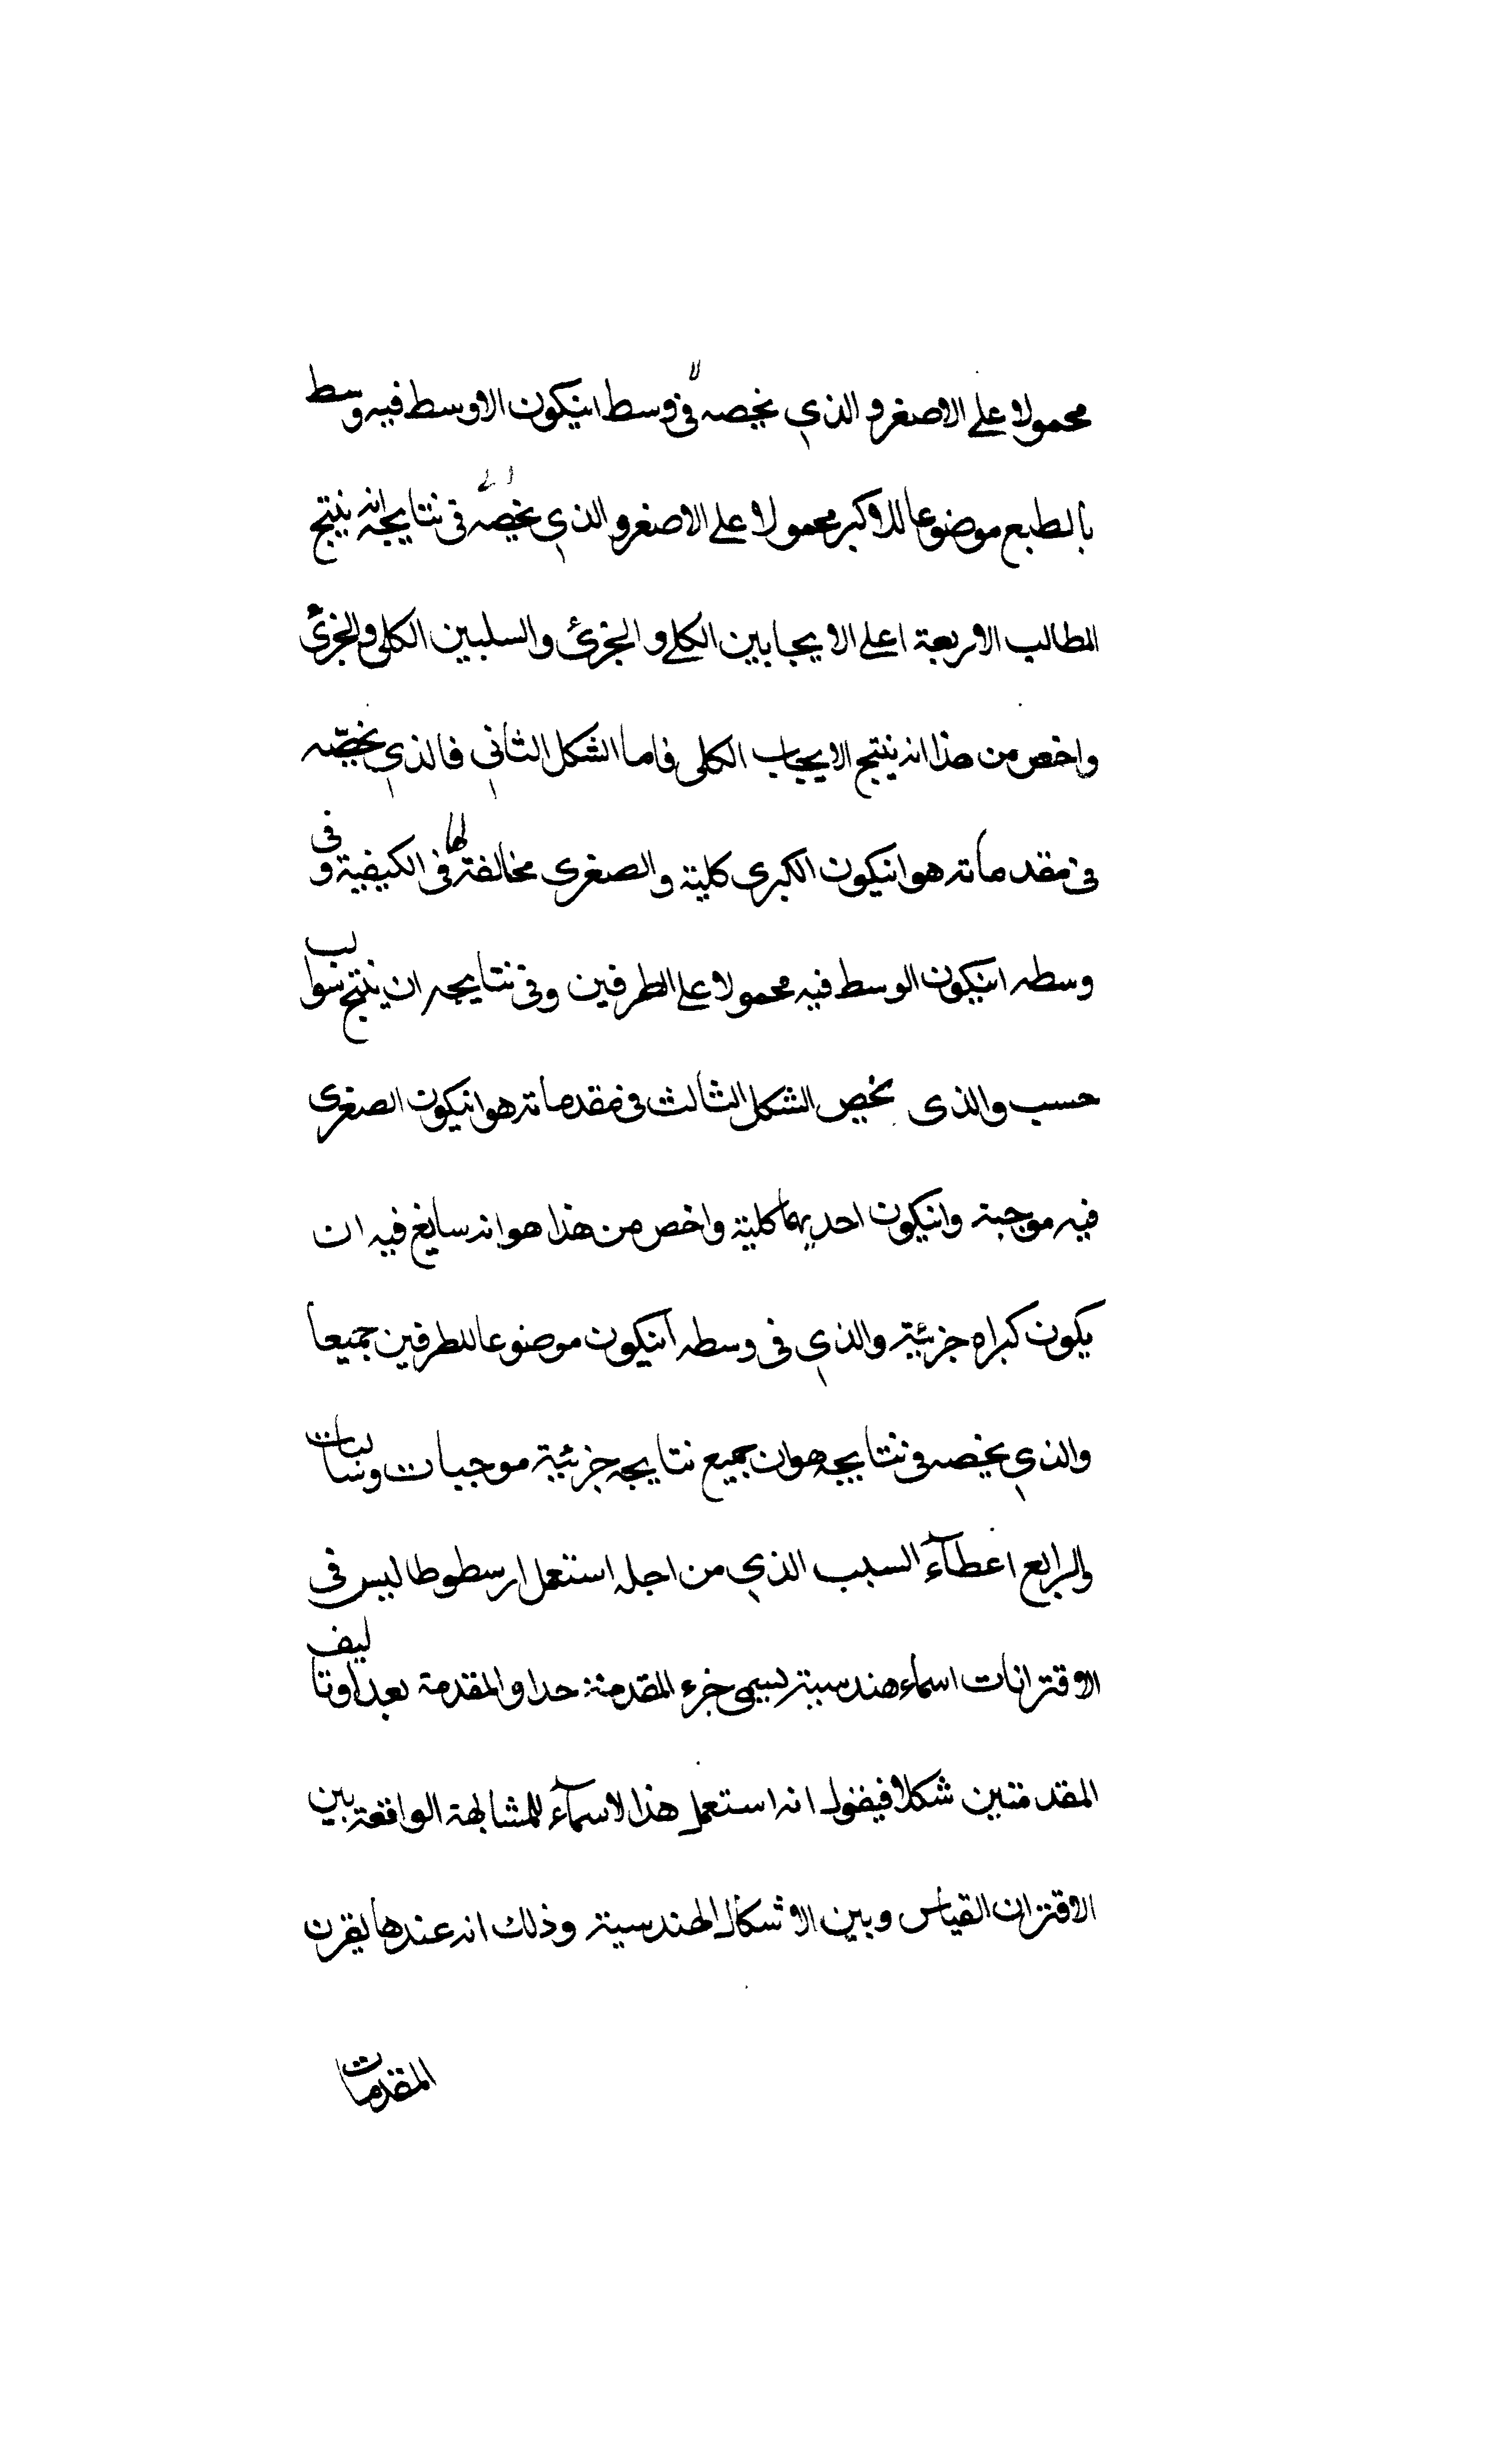 محمولا على الاصغر والذي يخصه فى وسط انيكون الاوسط فيه وسط
بالطبع موضوعا للاكبر محمولا على الاصغر والذي يخصه فى نتايجه انه ينتج
المطالب الاربعة اعلى الايجابين الكلى والجزئ والسلبين الكلى والجزئ
واخص من هذا انه ينتج الايجاب الكلى فاما الشكل الثاني فالذي يخصّه
فى مقدماته هو انيكون الكبرى كلية والصغرى مخالفة لها فى الكيفية وفى
وسطه انيكون الوسط فيه محمولا على الطرفين وفى نتايجه ان ينتج سوالب
حسب والذى يخص الشكل الثالث فى مقدماته هو انيكون الصغرى
فيه موجبة وانيكون احديهما كلية واخص من هذا هو انه سايغ فيه ان
يكون كبراه جزئية والذي فى وسطه انيكون موضوعا للطرفين جميعا
والذي يخصه فى نتايجه هو ان جميع نتايجه جزئية موجبات وسالبات
والرابع اعطآء السبب الذي من اجله استعمل ارسطوطاليس فى
الاقترانات اسماء هندسية يسمى جزء المقدمة حدا والمقدمة بعدا وتاليف
المقدمتين شكلا فيقول انه استعمل هذا لاسمآء للمشابهة الواقعة بين
الاقتران القياس وبين الاشكال الهندسية وذلك انه عندها يقرن
المقدمات